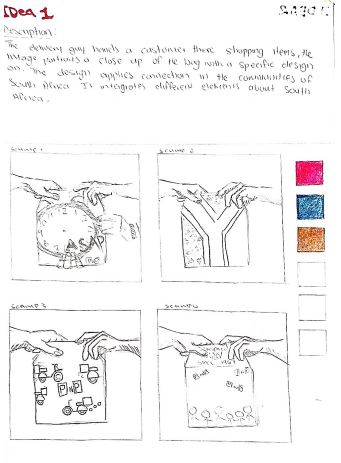 IDea 1
Description:
The delivery guy hands a customer there shopping items, the
image portraits a close up of the bag with a specific design
on. The design applies connection in the communities of
South Africa It intergrates different elements about South
Africa.
SCAMP 1
SCAMP 2
ASAP
SCAMP 3
SCAMP 4
PnP